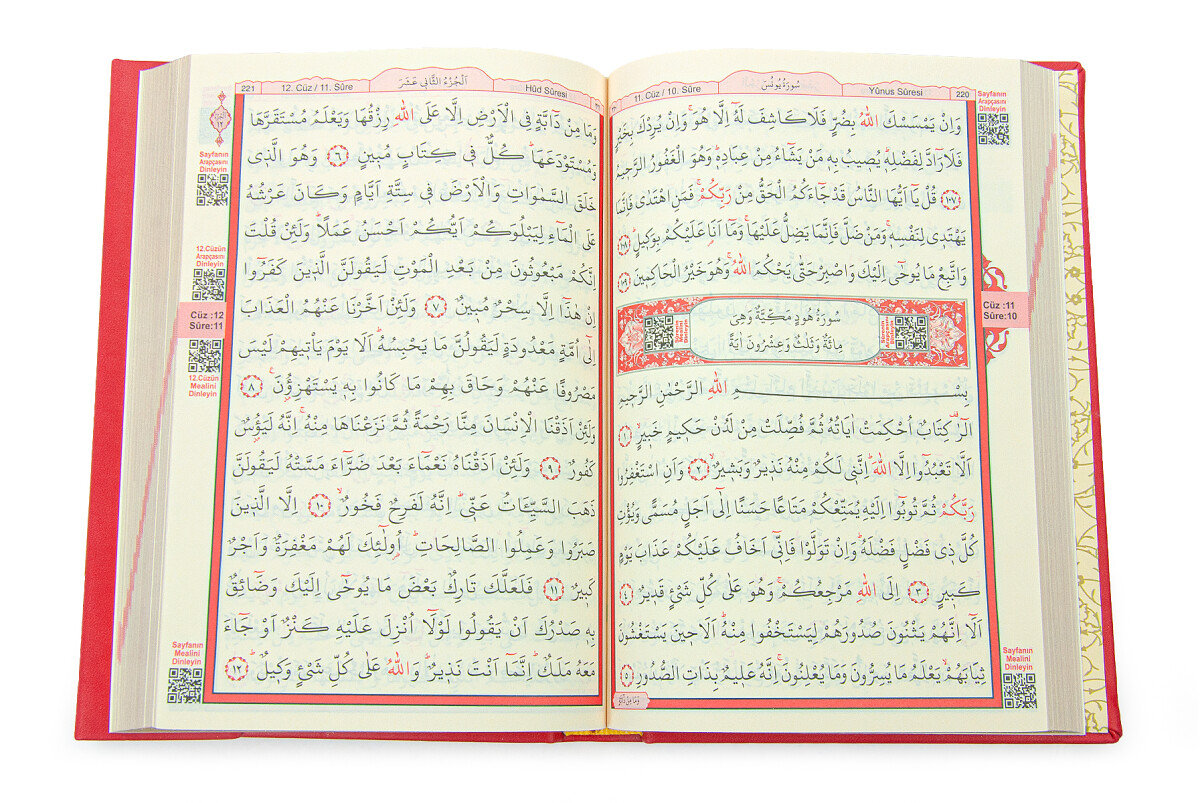 سُورَةُ يُونُسَ
Yûnus Sûresi
220
11. Cüz / 10. Sûre
وَاِنْ يَمْسَسْكَ اللّٰهُ بِضُرٍّ فَلَا كَاشِفَ لَهُٓ اِلَّا هُوَۚ وَاِنْ يُرِدْكَ بِخَيْرٍ
فَلَا رَٓادَّ لِفَضْلِهٖۜ يُصٖيبُ بِهٖ مَنْ يَشَٓاءُ مِنْ عِبَادِهٖۜ وَهُوَ الْغَفُورُ الرَّحٖيمُ
﴿١٠٧﴾ قُلْ يَٓا اَيُّهَا النَّاسُ قَدْ جَٓاءَكُمُ الْحَقُّ مِنْ رَبِّكُمْۚ فَمَنِ اهْتَدٰى فَاِنَّمَا
يَهْتَدٖى لِنَفْسِهٖۚ وَمَنْ ضَلَّ فَاِنَّمَا يَضِلُّ عَلَيْهَاۚ وَمَٓا اَنَا۬ عَلَيْكُمْ بِوَكٖيلٍۜ ﴿١٠٨﴾
وَاتَّبِعْ مَا يُوحٰٓى اِلَيْكَ وَاصْبِرْ حَتّٰى يَحْكُمَ اللّٰهُۚ وَهُوَ خَيْرُ الْحَاكِمٖينَ ﴿١٠٩﴾
سُورَةُ هُودٍ مَكِّيَّةٌ وَهِيَ
مِائَةٌ وَثَلٰثٌ وَعِشْرُونَ اٰيَةً
Sayfanın
Mealini
Dinleyin
بِسْمِ اللّٰهِ الرَّحْمٰنِ الرَّحٖيمِ
الٓرٰ۠ كِتَابٌ اُحْكِمَتْ اٰيَاتُهُ ثُمَّ فُصِّلَتْ مِنْ لَدُنْ حَكٖيمٍ خَبٖيرٍۙ ﴿١﴾
اَلَّا تَعْبُدُٓوا اِلَّا اللّٰهَۜ اِنَّنٖي لَكُمْ مِنْهُ نَذٖيرٌ وَبَشٖيرٌۙ ﴿٢﴾ وَاَنِ اسْتَغْفِرُوا
رَبَّكُمْ ثُمَّ تُوبُٓوا اِلَيْهِ يُمَتِّعْكُمْ مَتَاعاً حَسَناً اِلٰٓى اَجَلٍ مُسَمًّى وَيُؤْتِ
كُلَّ ذٖي فَضْلٍ فَضْلَهُۜ وَاِنْ تَوَلَّوْا فَاِنّٖٓي اَخَافُ عَلَيْكُمْ عَذَابَ يَوْمٍ
كَبٖيرٍ ﴿٣﴾ اِلَى اللّٰهِ مَرْجِعُكُمْۚ وَهُوَ عَلٰى كُلِّ شَيْءٍ قَدٖيرٌ ﴿٤﴾
اَلَٓا اِنَّهُمْ يَثْنُونَ صُدُورَهُمْ لِيَسْتَخْفُوا مِنْهُۜ اَلَا حٖينَ يَسْتَغْشُونَ
ثِيَابَهُمْۙ يَعْلَمُ مَا يُسِرُّونَ وَمَا يُعْلِنُونَۚ اِنَّهُ عَلٖيمٌ بِذَاتِ الصُّدُورِ ﴿٥﴾
وَمَا مِنْ دَٓابَّةٍ
Sayfanın
Arapçasını
Dinleyin
Cüz :11
Sûre:10
Sayfanın
Mealini
Dinleyin
اَلْجُزْءُ الثَّانٖي عَشَرَ
Hûd Sûresi
12. Cüz / 11. Sûre
221
وَمَا مِنْ دَٓابَّةٍ فِي الْاَرْضِ اِلَّا عَلَى اللّٰهِ رِزْقُهَا وَيَعْلَمُ مُسْتَقَرَّهَا
وَمُسْتَوْدَعَهَاۜ كُلٌّ فٖي كِتَابٍ مُبٖينٍ ﴿٦﴾ وَهُوَ الَّذٖي
خَلَقَ السَّمٰوَاتِ وَالْاَرْضَ فٖي سِتَّةِ اَيَّامٍ وَكَانَ عَرْشُهُ
عَلَى الْمَٓاءِ لِيَبْلُوَكُمْ اَيُّكُمْ اَحْسَنُ عَمَلاًۜ وَلَئِنْ قُلْتَ
اِنَّكُمْ مَبْعُوثُونَ مِنْ بَعْدِ الْمَوْتِ لَيَقُولَنَّ الَّذٖينَ كَفَرُٓوا
اِنْ هٰذَٓا اِلَّا سِحْرٌ مُبٖينٌ ﴿٧﴾ وَلَئِنْ اَخَّرْنَا عَنْهُمُ الْعَذَابَ
اِلٰٓى اُمَّةٍ مَعْدُودَةٍ لَيَقُولُنَّ مَا يَحْبِسُهُۜ اَلَا يَوْمَ يَأْتٖيهِمْ لَيْسَ
مَصْرُوفاً عَنْهُمْ وَحَاقَ بِهِمْ مَا كَانُوا بِهٖ يَسْتَهْزِؤُ۫نَۚ ﴿٨﴾
وَلَئِنْ اَذَقْنَا الْاِنْسَانَ مِنَّا رَحْمَةً ثُمَّ نَزَعْنَاهَا مِنْهُۚ اِنَّهُ لَيَؤُ۫سٌ
كَفُورٌ ﴿٩﴾ وَلَئِنْ اَذَقْنَاهُ نَعْمَٓاءَ بَعْدَ ضَرَّٓاءَ مَسَّتْهُ لَيَقُولَنَّ
ذَهَبَ السَّيِّـَٔاتُ عَنّٖيۜ اِنَّهُ لَفَرِحٌ فَخُورٌۙ ﴿١٠﴾ اِلَّا الَّذٖينَ
صَبَرُوا وَعَمِلُوا الصَّالِحَاتِۜ اُو۬لٰٓئِكَ لَهُمْ مَغْفِرَةٌ وَاَجْرٌ
كَبٖيرٌ ﴿١١﴾ فَلَعَلَّكَ تَارِكٌ بَعْضَ مَا يُوحٰٓى اِلَيْكَ وَضَٓائِقٌ
بِهٖ صَدْرُكَ اَنْ يَقُولُوا لَوْلَٓا اُنْزِلَ عَلَيْهِ كَنْزٌ اَوْ جَٓاءَ
مَعَهُ مَلَكٌۜ اِنَّمَٓا اَنْتَ نَذٖيرٌۜ وَاللّٰهُ عَلٰى كُلِّ شَيْءٍ وَكٖيلٌۜ ﴿١٢﴾
Sayfanın
Arapçasını
Dinleyin
12.Cüzün
Arapçasını
Dinleyin
Cüz :12
Sûre:11
12.Cüzün
Mealini
Dinleyin
Sayfanın
Mealini
Dinleyin